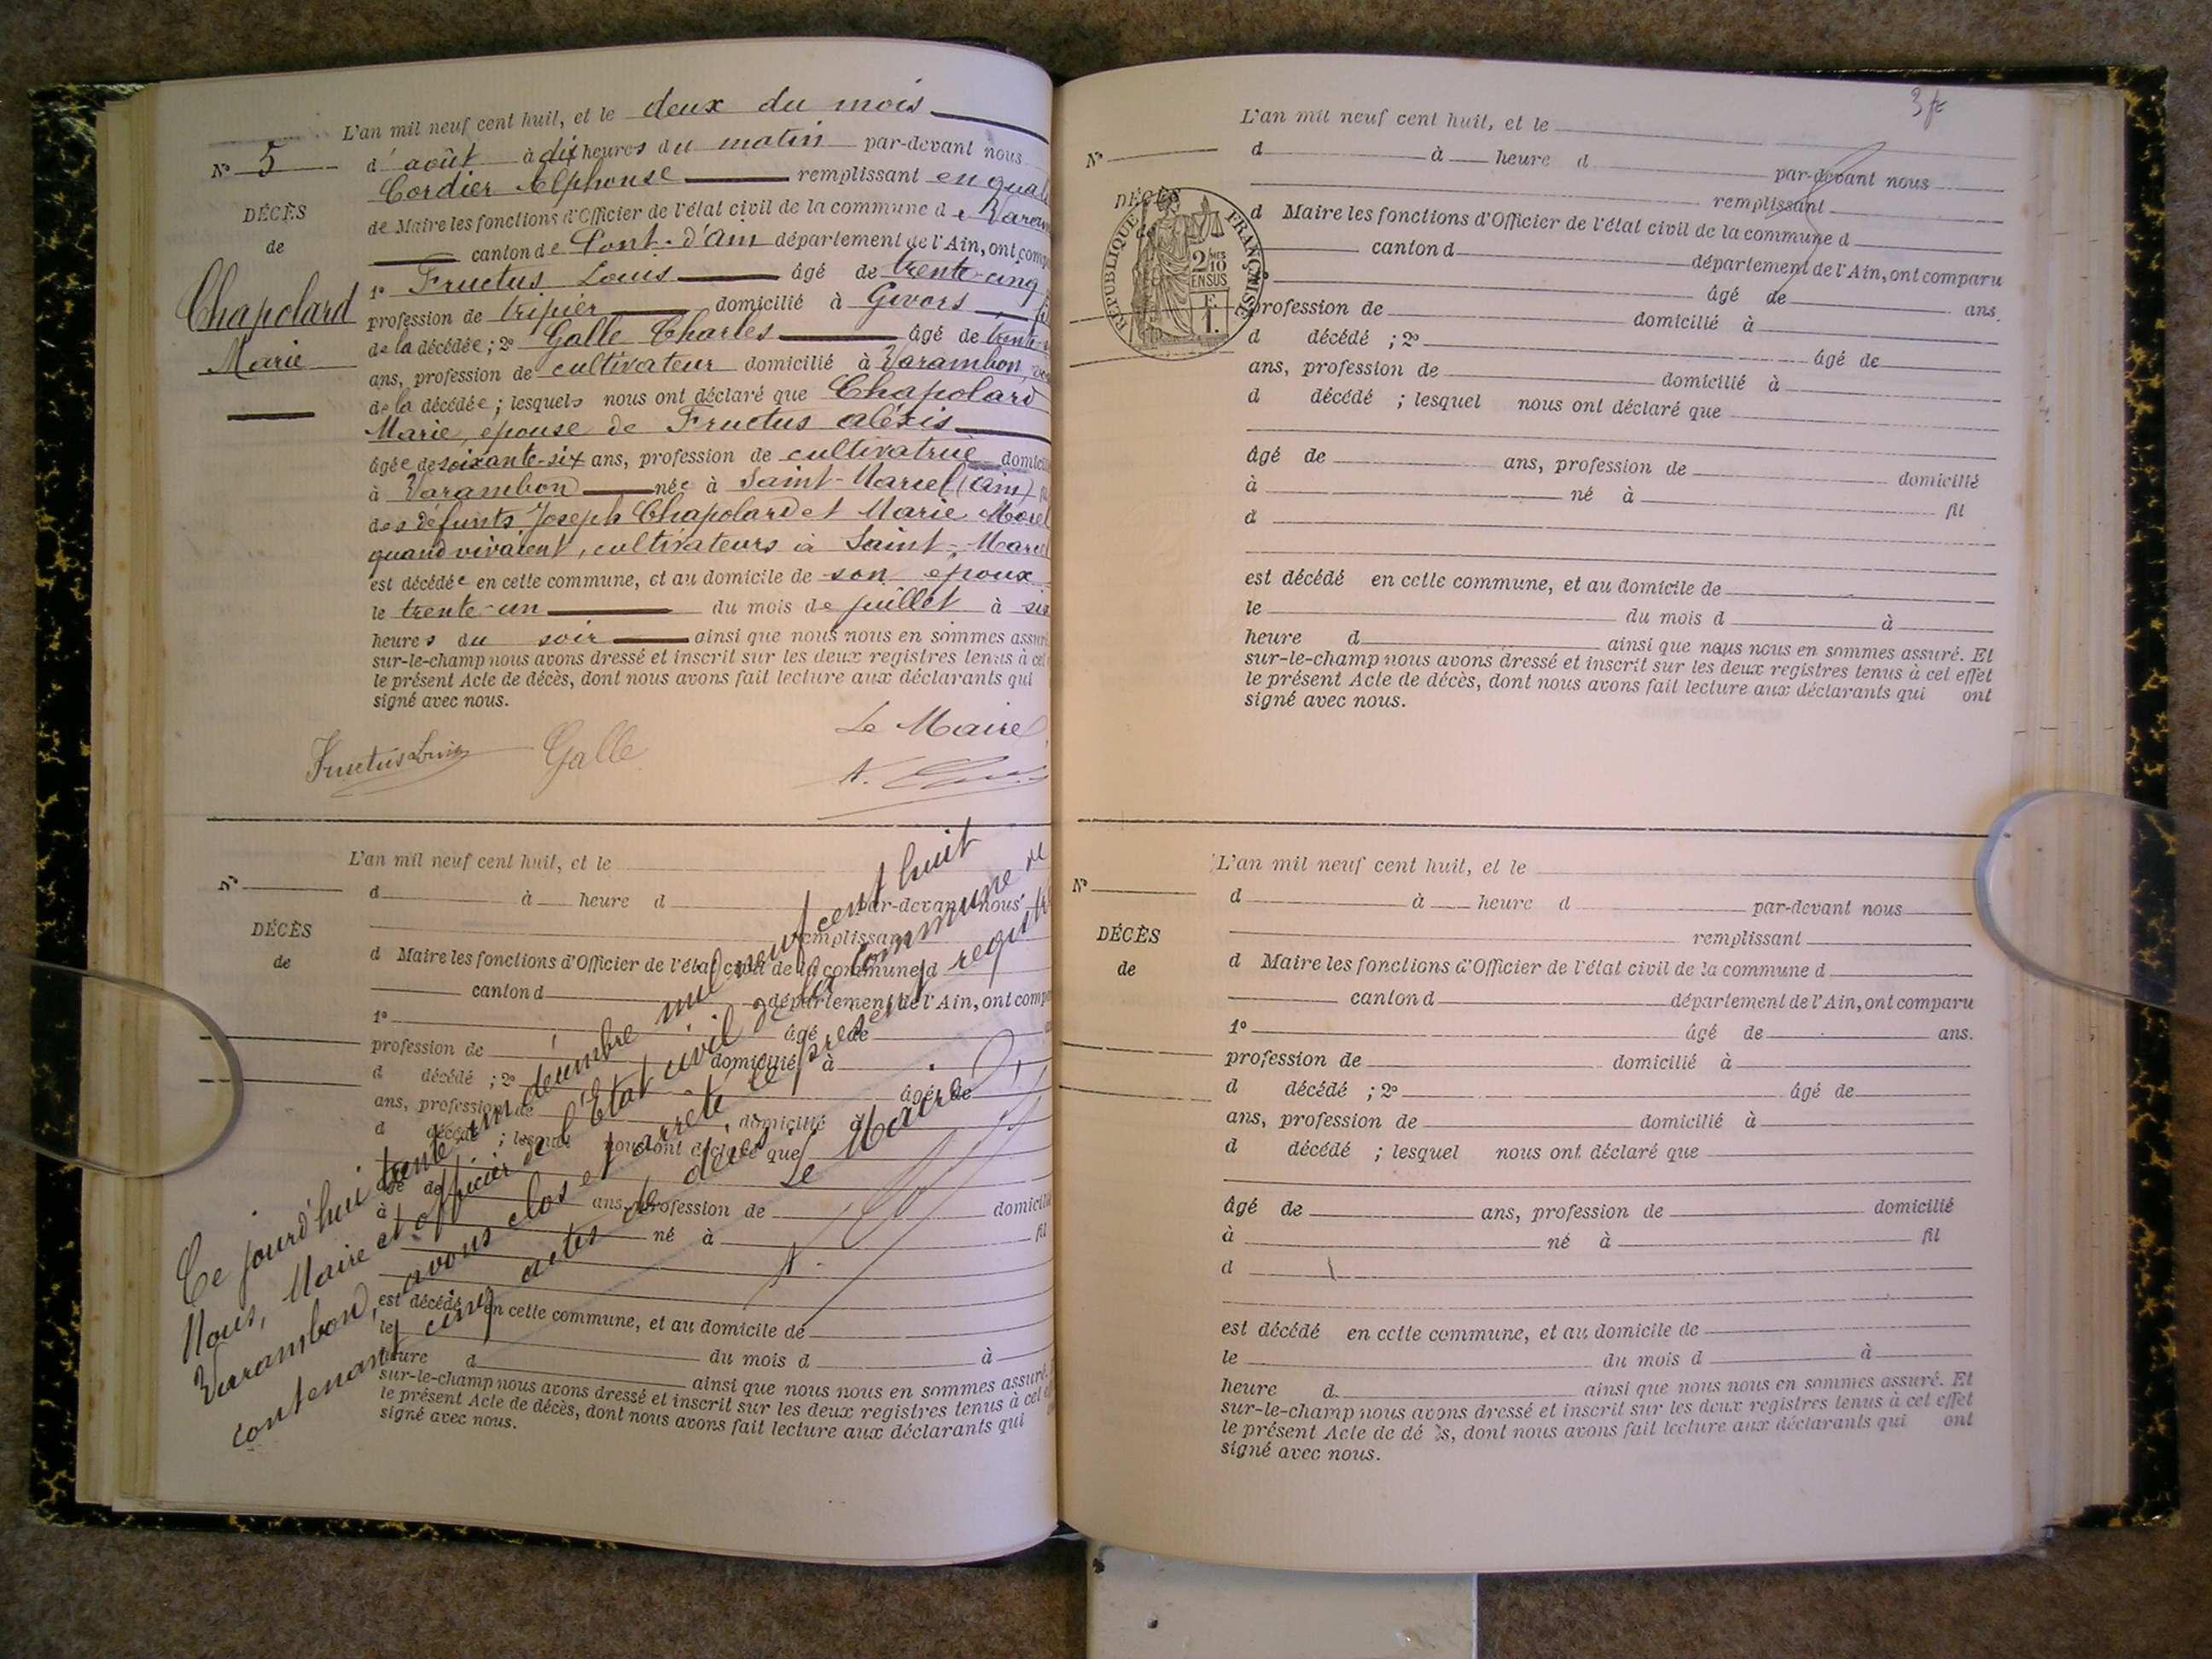 L'an mil neuf cent huit, et le deux du mois
N° 5
d'août à dix heures du matin par-devant nous
Cordier Alphonse remplissant en qual
DÉCÈS
de Maire les fonctions d'Officier de l'état civil de la commune de Varam
de
canton de Pont-d'Ain département de l'Ain, ont comp
1° Fructus Louis âgé de trente-cinq
Chapolard
profession de tripier domicilié à Givors
de la décédée ; 2° Galle Charles âgé de trente
Marie
ans, profession de cultivateur domicilié à Varambon,
de la décédée ; lesquels nous ont déclaré que Chapolard
Marie, épouse de Fructus aléxis
âgée de soixante-six ans, profession de cultivatrice domicili
à Varambon née à Saint-Marcel (ain)
des défunts Joseph Chapolard et Marie Morel
quand vivaient, cultivateurs à Saint-Marcel
est décédée en cette commune, et au domicile de son époux
le trente-un du mois de juillet à six
heures du soir ainsi que nous nous en sommes assuré
sur-le-champ nous avons dressé et inscrit sur les deux registres tenus à cet
le présent Acte de décès, dont nous avons fait lecture aux déclarants qui
signé avec nous.
Le Maire
Fructus Louis Galle
A.
L'an mil neuf cent huit, et le
N°
d à heure d par-devant nous
remplissant
DÉCÈS
d Maire les fonctions d'Officier de l'état civil de la commune d
de
canton d département de l'Ain, ont comp
1° âgé de
profession de domicilié à
d décédé ; 2° âgé de
ans, profession de domicilié à
d décédé ; lesquel nous ont déclaré que
âgé de ans, profession de domicilié
à né à fil
est décédé en cette commune, et au domicile de
le du mois d à
heure d ainsi que nous nous en sommes assuré.
sur-le-champ nous avons dressé et inscrit sur les deux registres tenus à cet
le présent Acte de décès, dont nous avons fait lecture aux déclarants qui
signé avec nous.
Ce jourd'hui trente un décembre mil neuf cent huit
Nous, Maire et officier de l'Etat civil de la Commune de
Varambon, avons clos et arrêté le présent registre
contenant cinq actes de décès. Le Maire
A.
3
L'an mil neuf cent huit, et le
N°
d à heure d par-devant nous
remplissant
DÉCÈS
de
RÉPUBLIQUE FRANÇAISE
2/10 EN SUS
d Maire les fonctions d'Officier de l'état civil de la commune d
canton d département de l'Ain, ont comparu
âgé de ans.
profession de domicilié à
d décédé ; 2° âgé de
ans, profession de domicilié à
d décédé ; lesquel nous ont déclaré que
âgé de ans, profession de domicilié
à né à fil
d
est décédé en cette commune, et au domicile de
le du mois d à
heure d ainsi que nous nous en sommes assuré. Et
sur-le-champ nous avons dressé et inscrit sur les deux registres tenus à cet effet
le présent Acte de décès, dont nous avons fait lecture aux déclarants qui ont
signé avec nous.
L'an mil neuf cent huit, et le
N°
d à heure d par-devant nous
remplissant
DÉCÈS
d Maire les fonctions d'Officier de l'état civil de la commune d
de
canton d département de l'Ain, ont comparu
1° âgé de ans.
profession de domicilié à
d décédé ; 2° âgé de
ans, profession de domicilié à
d décédé ; lesquel nous ont déclaré que
âgé de ans, profession de domicilié
à né à fil
d
est décédé en cette commune, et au domicile de
le du mois d à
heure d ainsi que nous nous en sommes assuré. Et
sur-le-champ nous avons dressé et inscrit sur les deux registres tenus à cet effet
le présent Acte de dé s, dont nous avons fait lecture aux déclarants qui ont
signé avec nous.